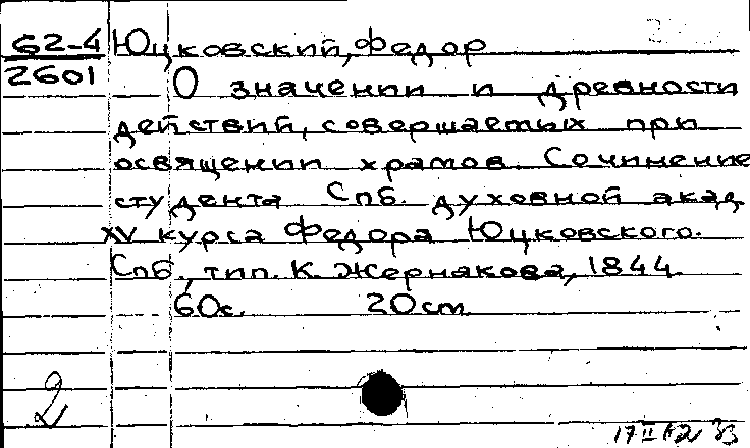 62-4 Юцковский, Федор
2601 О значении и древности
действий, совершаемых при
освящении храмов. Сочинение
студента Спб. духовной акад.
XV курса Федора Юцковского.
Спб., тип. К. Жернакова, 1844.
60с. 20см.
2
17 II 62